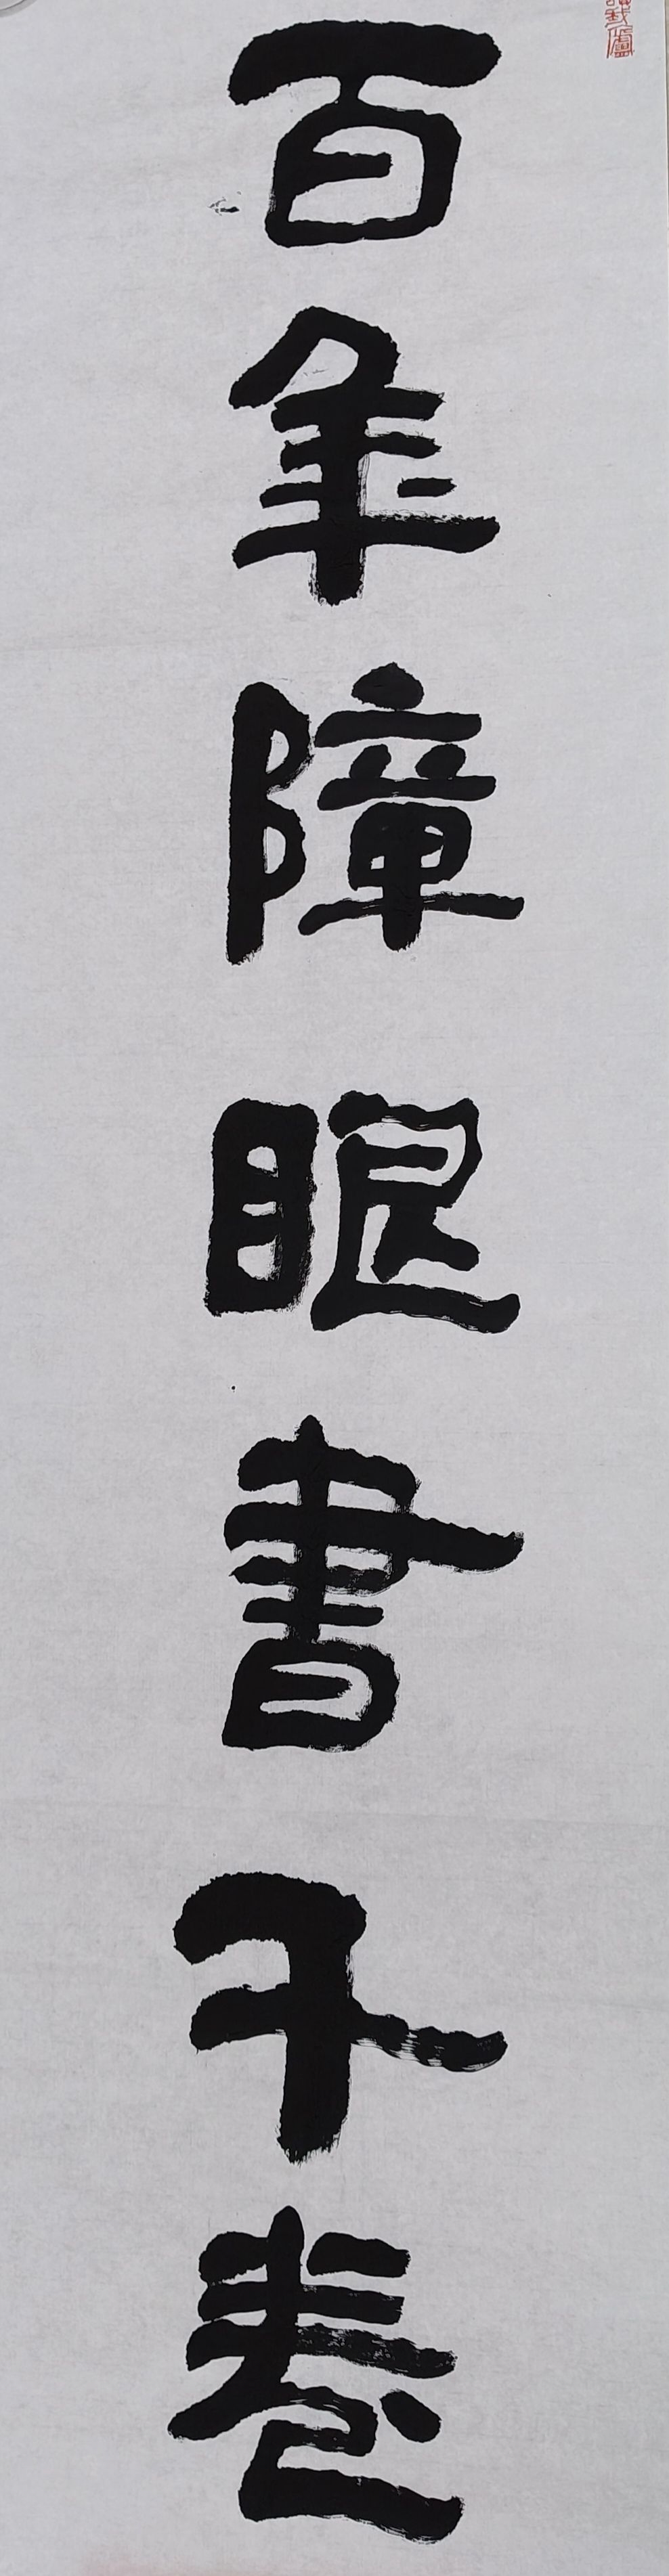 百年障眼書千卷